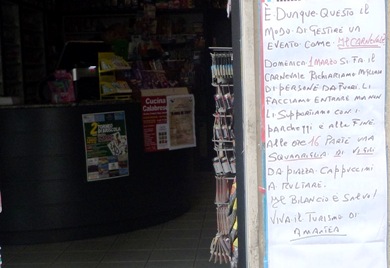 È DUNQUE QUESTO IL
MODO DI GESTIRE UN
EVENTO COME IL CARNEVALE
DOMENICA 1 MARZO SI FA IL
CARNEVALE RICHIAMIAMO MIGLIAIA
DI PERSONE DA FUORI. LI
FACCIAMO ENTRARE MA NON
LI SUPPORTIAMO CON I
PARCHEGGI E ALLA FINE
ALLE ORE 16 PARTE UNA
SQUADRIGLIA DI VIGILI
DA PIAZZA CAPPUCCINI
A MULTARE.
IL BILANCIO È SALVO!
VIVA IL TURISMO DI
AMANTEA
Cucina
Calabrese
2